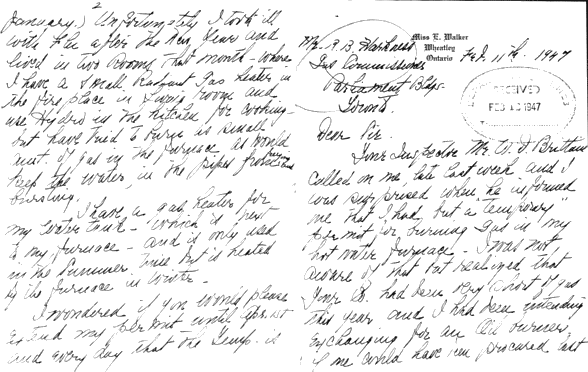 Miss E. Walker
Wheatley
Ontario
Feb. 11th, 1947
Mr. R. B. Harkness
Gas Commissioner
Parliament Bldgs.
Toronto
RECEIVED
FEB 13 1947
Dear Sir
Your Inspector Mr. W. J. Brittain
called on me late last week and I
was surprised when he informed
me that I had but a "temporary"
permit for burning gas in my
hot water furnace - I was not
aware of that but realized that
your Co. had been very short of gas
this year and I had been intending
exchanging for an oil burner
if one could have been procured last
2
January.) Unfortunately I took ill
with Flu after the New Years and
lived in two rooms that month - where
I have a small Radiant gas heater in
the fire place in living room and
use Hydro in the kitchen for cooking -
but have tried to burn as small
amt. of gas in the furnace as would
keep the water in the pipes from
bursting.
I have a gas heater for
my water tank - which is next
to my furnace - and is only used
in the Summer time but is heated
by the furnace in winter.
I wondered if you would please
extend my permit until Apr. 1st
and every day that the temp. is